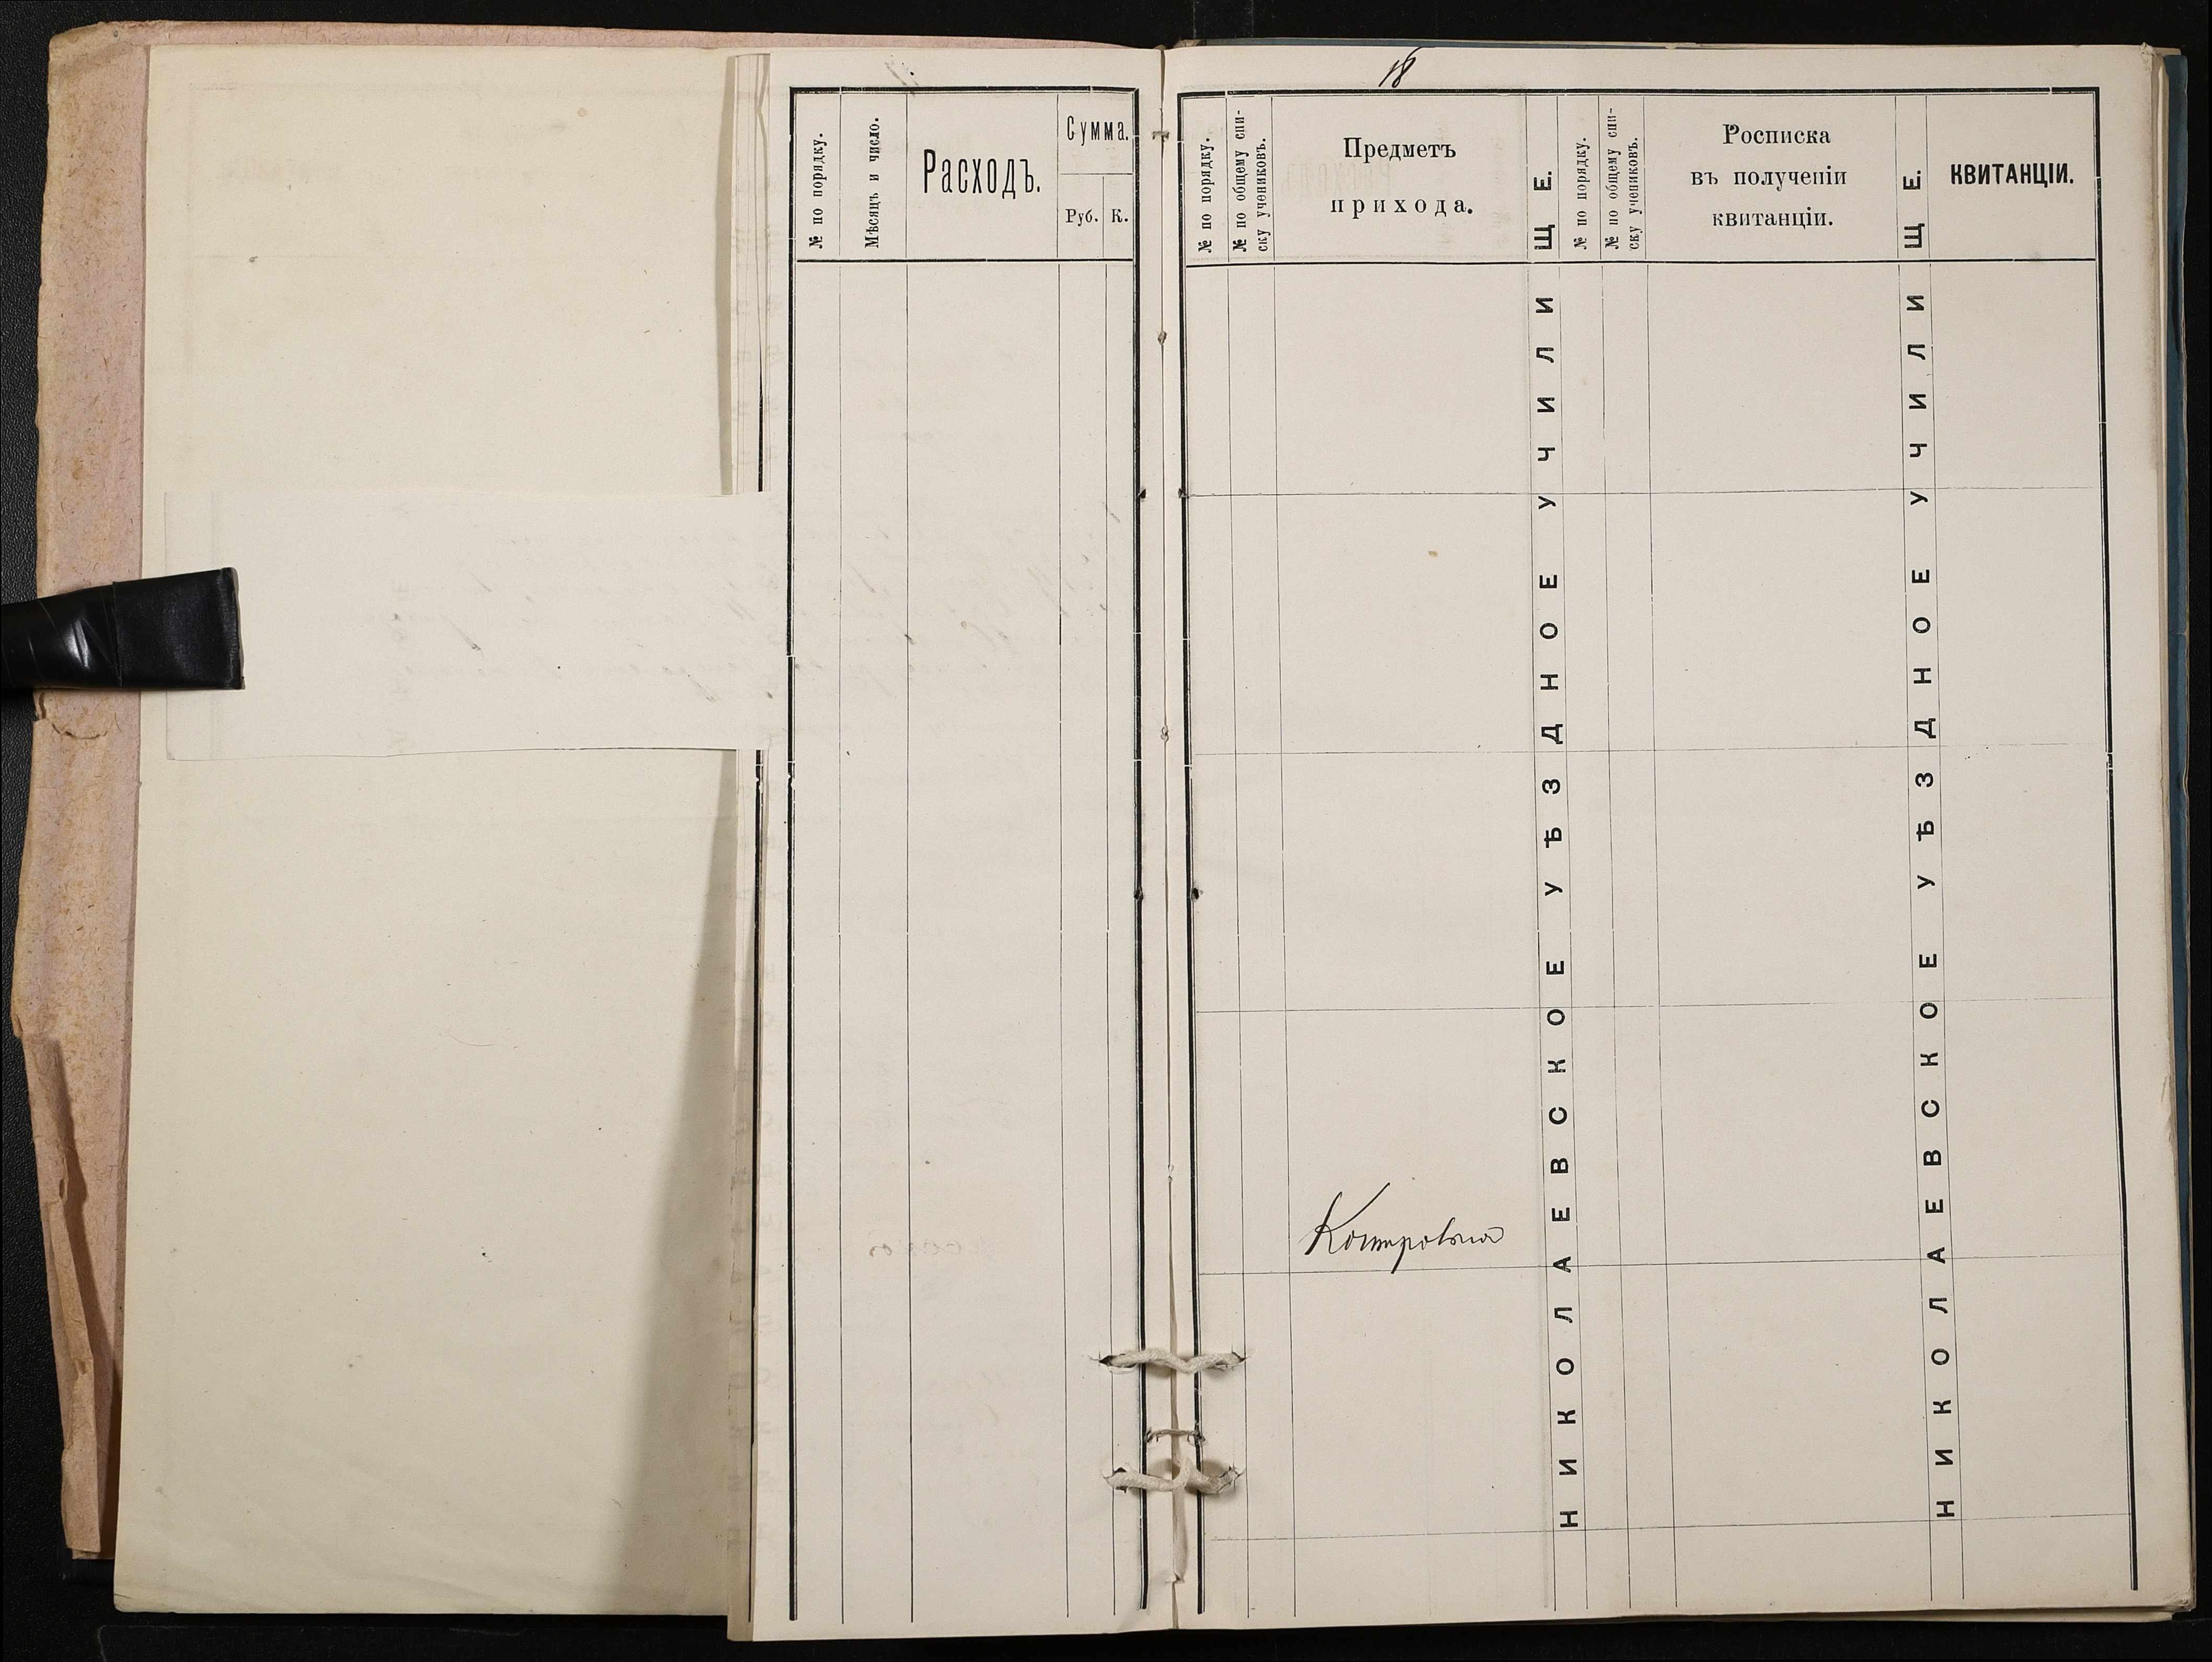 № по порядку.
Мѣсяцъ и число.
Расходъ.
Сумма.
Руб.
К.
18
№ по порядку.
№ по общему спи-
ску учениковъ.
Предметъ
прихода.
НИКОЛАЕВСКОЕ УѢЗДНОЕ УЧИЛИЩЕ.
№ по порядку.
№ по общему спи-
ску учениковъ.
Росписка
въ полученіи
квитанціи.
НИКОЛАЕВСКОЕ УѢЗДНОЕ УЧИЛИЩЕ.
КВИТАНЦІИ.